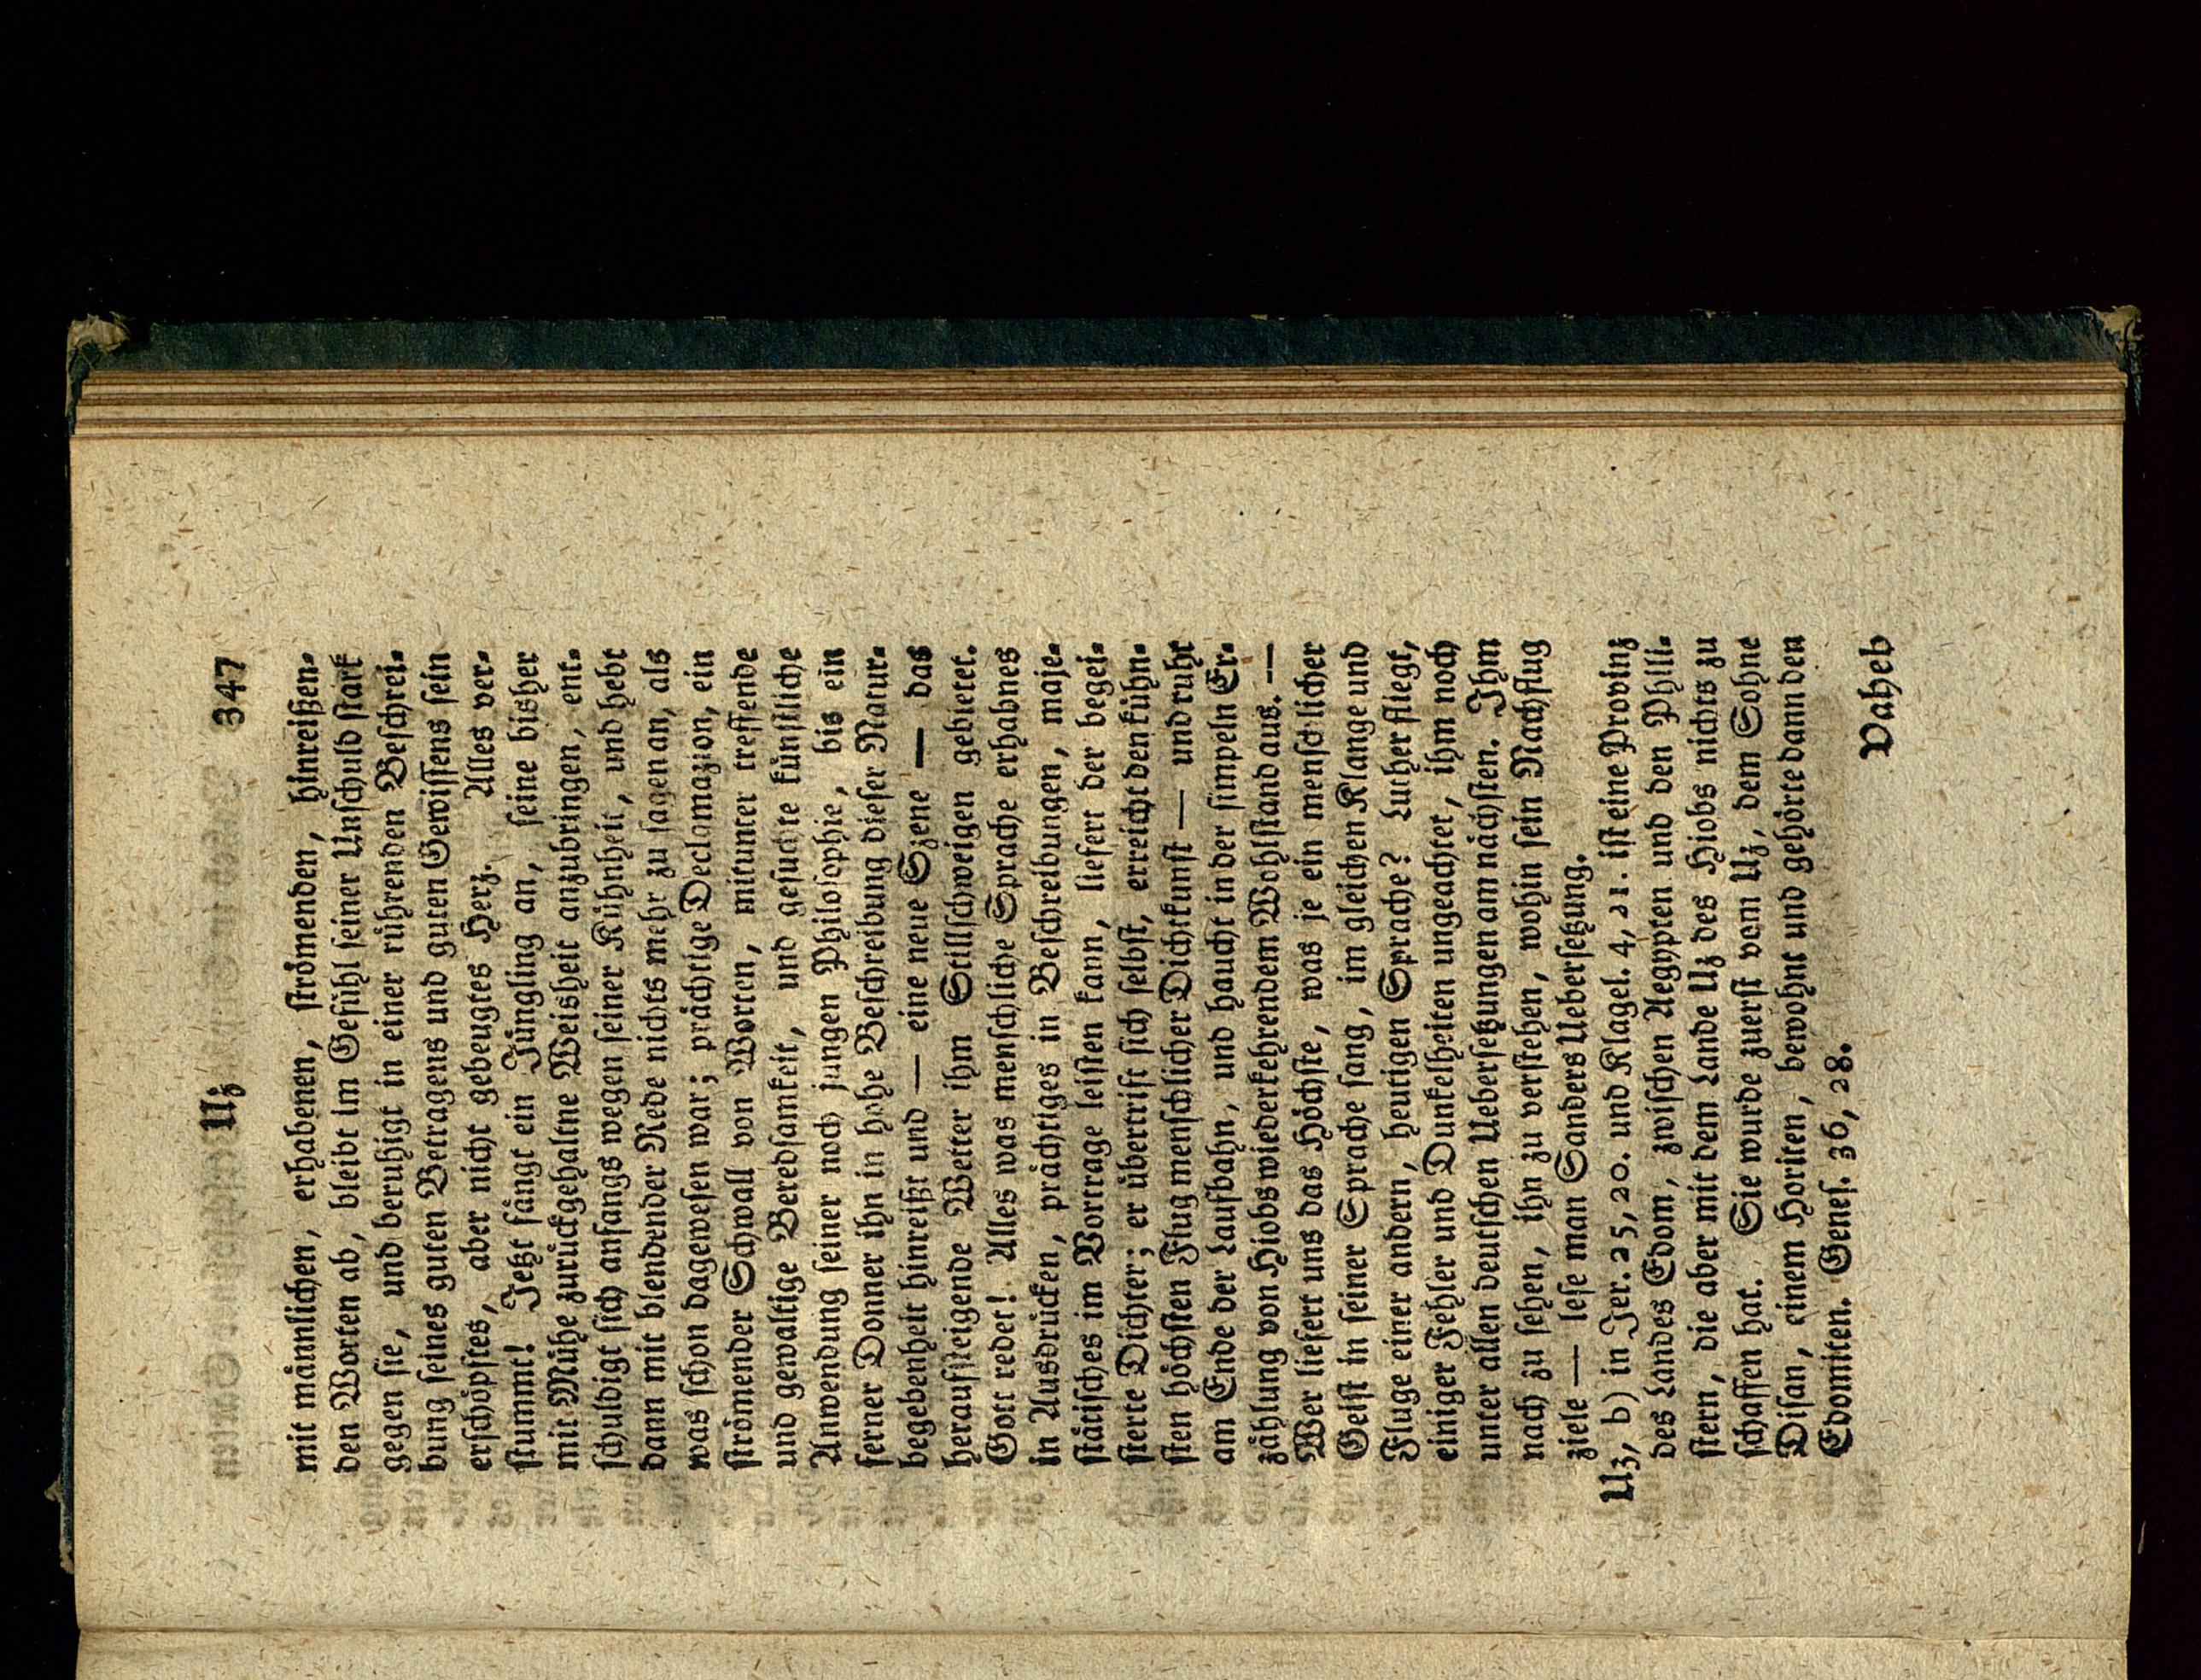 Uz 347
mit männlichen, erhabenen, strömenden, hinreißen-
den Worten ab, bleibt im Gefühl seiner Unschuld stark
gegen sie, und beruhigt in einer rührenden Beschrei-
bung seines guten Betragens und guten Gewissens sein
erschöpftes, aber nicht gebeugtes Herz. Alles ver-
stummt! Jetzt fängt ein Jüngling an, seine bisher
mit Mühe zurückgehaltne Weisheit anzubringen, ent-
schuldigt sich anfangs wegen seiner Kühnheit, und hebt
dann mit blendender Rede nichts mehr zu sagen an, als
was schon dagewesen war; prächtige Declamazion, ein
strömender Schwall von Worten, mitunter treffende
und gewaltige Beredsamkeit, und gesuchte künstliche
Anwendung seiner noch jungen Philosophie, bis ein
ferner Donner ihn in hohe Beschreibung dieser Natur-
begebenheit hinreißt und — eine neue Szene — das
heraufsteigende Wetter ihm Stillschweigen gebietet.
Gott redet! Alles was menschliche Sprache erhabnes
in Ausdrücken, prächtiges in Beschreibungen, maje-
stätisches im Vortrage leisten kann, liefert der begei-
sterte Dichter; er übertrift sich selbst, erreicht den kühn-
sten höchsten Flug menschlicher Dichtkunst — und ruht
am Ende der Laufbahn, und haucht in der simpeln Er-
zählung von Hiobs wiederkehrendem Wohlstand aus. —
Wer liefert uns das Höchste, was je ein menschlicher
Geist in seiner Sprache sang, im gleichen Klange und
Fluge einer andern, heutigen Sprache? Luther fliegt,
einiger Fehler und Dunkelheiten ungeachtet, ihm noch
unter allen deutschen Uebersetzungen am nächsten. Ihm
nach zu sehen, ihn zu verstehen, wohin sein Nachflug
ziele — lese man Sanders Uebersetzung.
Uz, b) in Jer. 25, 20. und Klagel. 4, 21. ist eine Provinz
des Landes Edom, zwischen Aegypten und den Phili-
stern, die aber mit dem Lande Uz des Hiobs nichts zu
schaffen hat. Sie wurde zuerst vom Uz, dem Sohne
Disan, einem Horiten, bewohnt und gehörte dann den
Edomiten. Genes. 36, 28.
Vaheb